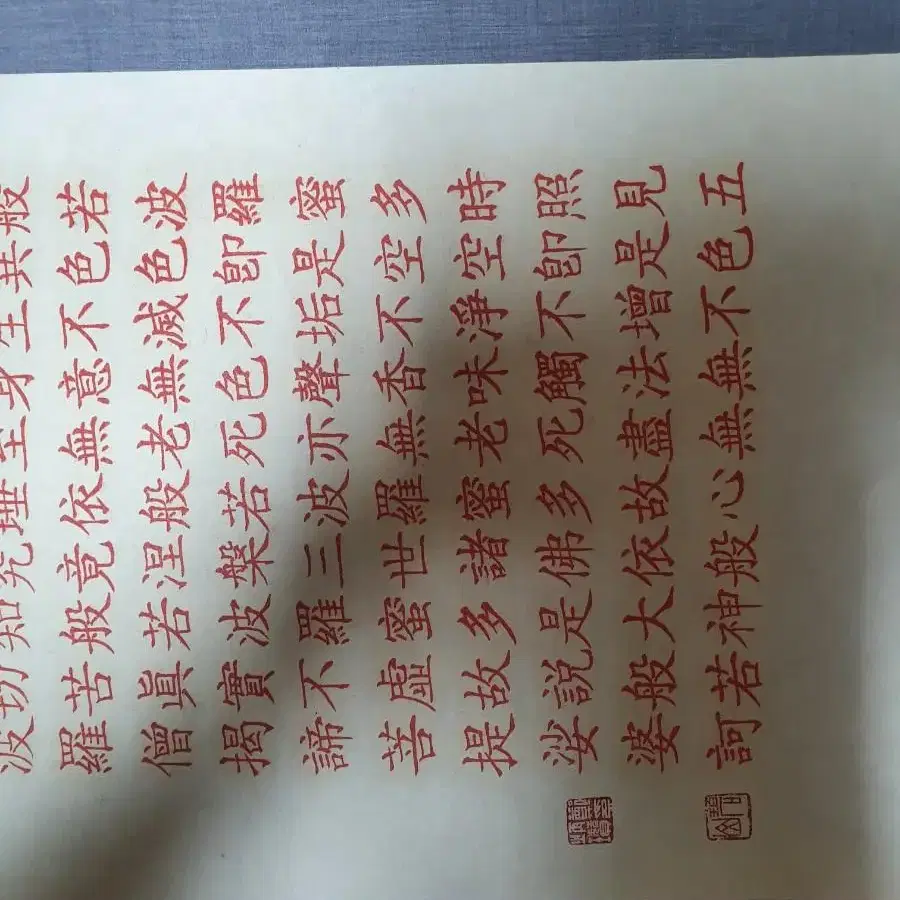 般若波羅蜜多時照見五
異色色卽是空空卽是色
生不滅不垢不淨不增不
身意無色聲香味觸法無
至無老死亦無老死盡無
埵依般若波羅蜜多故心
究竟涅槃三世諸佛依般
知般若波羅蜜多是大神
切苦眞實不虛故說般若
波羅僧揭諦菩提娑婆訶